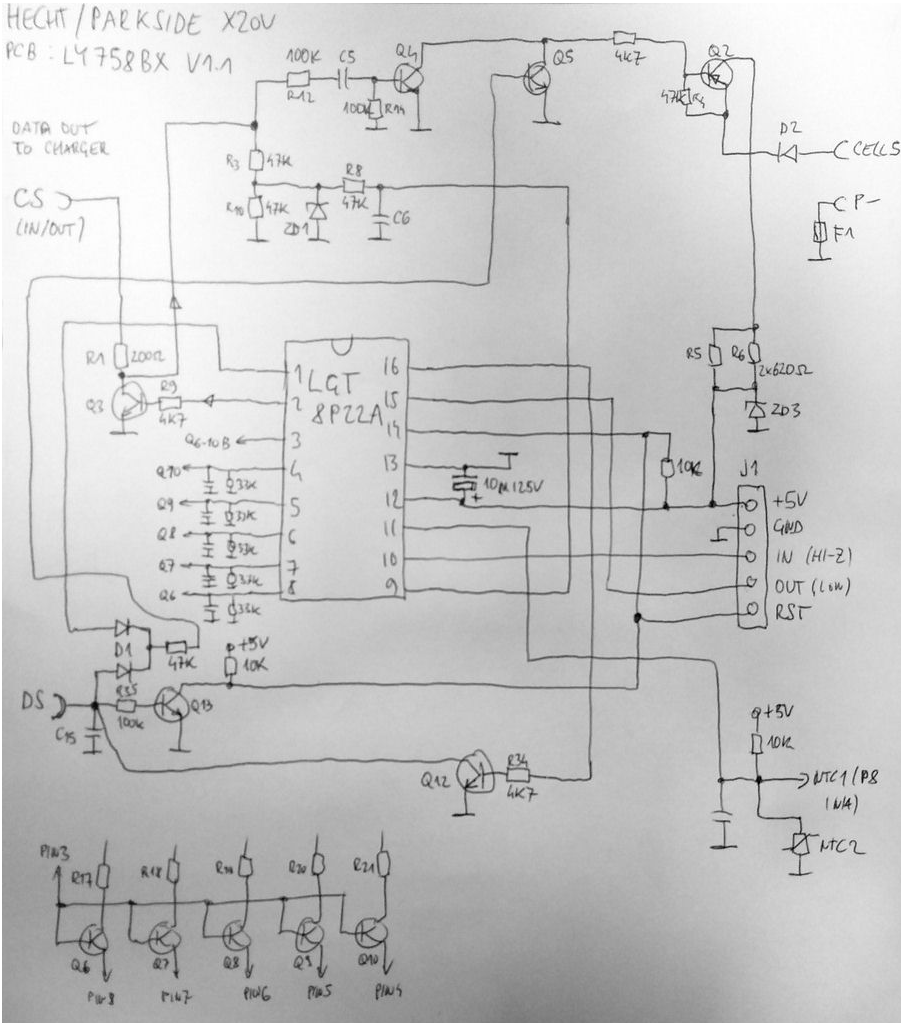 HECHT/PARKSIDE X20V
PCB: LY758BX V1.1
100K C5 Q4 Q5 4K7 Q2
R12 100K R14 47K R4
DATA OUT
TO CHARGER
D2 CELLS
R3 47K R8
CS R10 47K 47K C6 P-
(IN/OUT) ZD1 F1
R1 200Ω R5 R6
2x620Ω
Q3 R9 4K7 ZD3
1 LGT 16
2 8P22A 15
Q6-10B 3 14
10K J1
Q10 4 13 10M125V
33K
Q9 5 12 + +5V
33K
Q8 6 11 GND
33K
Q7 7 10 IN (HI-Z)
33K
Q6 8 9 OUT (LOW)
33K RST
D1 47K +5V
10K
DS R35 Q13
C15 100K +5V
10K
Q12 R34 NTC1/P8
4K7 (N/A)
NTC2
PIN3 R17 R18 R19 R20 R21
Q6 Q7 Q8 Q9 Q10
PIN8 PIN7 PIN6 PIN5 PIN4